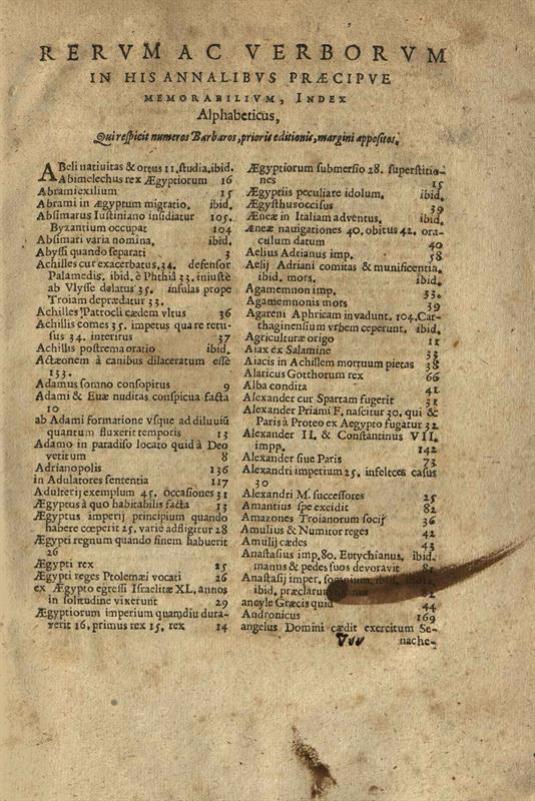 RERVM AC VERBORVM
IN HIS ANNALIBVS PRÆCIPVE
MEMORABILIVM, INDEX
Alphabeticus,
Qui respicit numeros Barbaros, prioris editionis, margini appositos.
ABeli natiuitas & ortus 11. studia. ibid.
Abimelechus rex Ægyptiorum 16
Abrami exilium 15
Abrami in Ægyptum migratio. ibid.
Absimarus Iustiniano insidiatur 105.
Byzantium occupat 104
Absimari varia nomina. ibid.
Abyssi quando separati 3
Achilles cur exacerbatus. 34. defensor
Palamedis. ibid. è Phthia 33. iniustè
ab Vlysse delatus 35. insulas prope
Troiam deprædatur 33.
Achilles Patrocli cædem vltus 36
Achillis comes 35. impetus quare retu-
sus 34. interitus 37
Achillis postrema oratio ibid.
Actæonem à canibus dilaceratum esse
133.
Adamus somno consopitus 9
Adami & Euæ nuditas conspicua facta
10
ab Adami formatione vsque ad diluuiũ
quantum fluxerit temporis 13
Adamo in paradiso locato quid à Deo
vetitum 8
Adrianopolis 136
in Adulatores sententia 117
Adulterij exemplum 45. occasiones 31
Ægyptus à quo habitabilis facta 13
Ægyptus imperij principium quando
habere cœperit 25. variè adfligitur 28
Ægypti regnum quando finem habuerit
26
Ægypti rex 25
Ægypti reges Ptolemæi vocati 26
ex Ægypto egressi Israelitæ XL, annos
in solitudine vixerunt 29
Ægyptiorum imperium quamdiu dura-
verit 16. primus rex 15. rex 14
Ægyptiorum submersio 28. superstitio-
nes 15
Ægyptiis peculiare idolum. ibid.
Ægysthus occisus 39
Æneæ in Italiam adventus. ibid.
Æneæ nauigationes 40. obitus 42. ora-
culum datum 40
Aelius Adrianus imp. 58
Aelij Adriani comitas & munificentia.
ibid. mors. ibid.
Agamemnon imp. 33.
Agamemnonis mors 39
Agareni Aphricam invadunt. 104. Car-
thaginensium vrbem ceperunt. ibid.
Agriculturæ origo 11
Aiax ex Salamine 33
Aiacis in Achillem mortuum pietas 38
Alaricus Gotthorum rex 66
Alba condita 41
Alexander cur Spartam fugerit 31
Alexander Priami F. nascitur 30. qui &
Paris à Proteo ex Aegypto fugatur 32
Alexander II. & Constantinus VII.
impp. 142
Alexander siue Paris 73
Alexandri imperium 25. infelices casus
30
Alexandri M. successores 25
Amantius spe excidit 82
Amazones Troianorum socij 36
Amulius & Numitor reges 42
Amulij cædes 43
Anastasius imp. 80. Eutychianus, ibid.
manus & pedes suos devoravit
Anastasij imper. somnium, ibid. mors.
ibid. præclarum
ancyle Græcis quid 44
Andronicus 169
angelus Domini cædit exercitum Se-
Vvv nache-